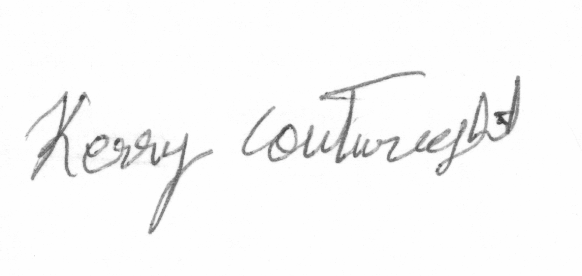 Kerry Coutureght